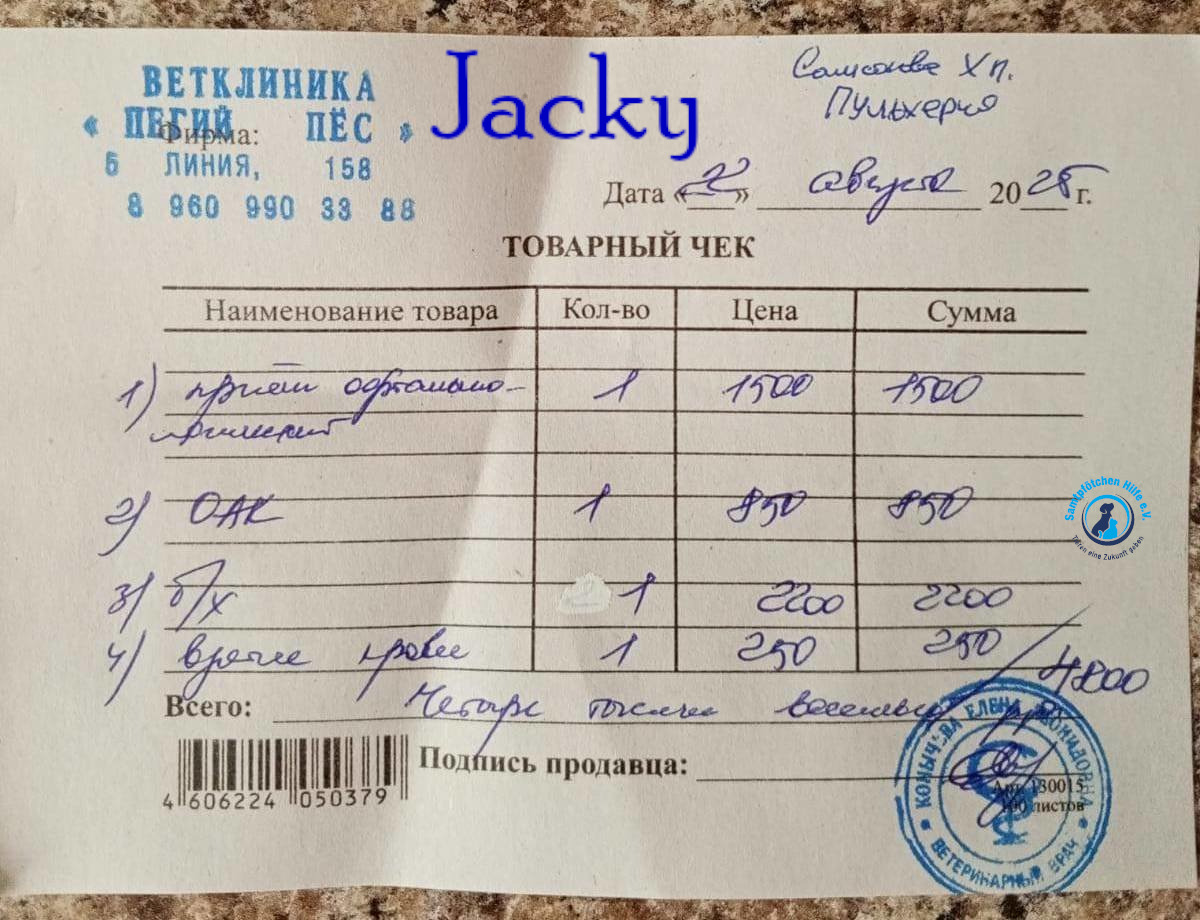 ВЕТКЛИНИКА
« ПЕГИЙ ПЁС »
Фирма:
6 ЛИНИЯ, 158
8 960 990 33 88
Jacky
Хп.
Пульхерия
Дата « » августа 2025 г.
ТОВАРНЫЙ ЧЕК
Наименование товара Кол-во Цена Сумма
1) приём офтальмо- 1 1500 1500
логический
2) ОАК 1 850 850
3) б/х 1 2200 2200
4) взятие крови 1 250 250
4800
Всего: Четыре тысячи восемьсот
Подпись продавца:
4 606224 050379
Арт. 130015
100 листов
КОМЫЧЕВА ЕЛЕНА ЛЕОНИДОВНА
ВЕТЕРИНАРНЫЙ ВРАЧ
Samtpfötchen Hilfe e.V.
Tieren eine Zukunft geben